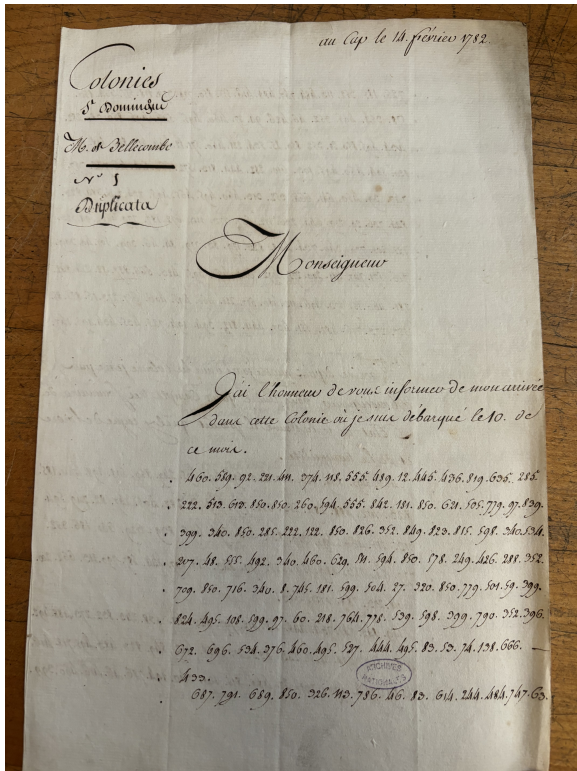 au Cap le 14. février 1782.
Colonies
St Domingue
M. de Bellecombe
N° 1
Duplicata
Monseigneur
J'ai l'honneur de vous informer de mon arrivée
dans cette Colonie où je suis débarqué le 10. de
ce mois.
460. 589. 92. 221. 411. 274. 118. 555. 489. 12. 445. 436. 819. 635. 285.
222. 513. 613. 850. 850. 260. 594. 555. 842. 181. 850. 621. 505. 779. 97. 839.
399. 340. 850. 285. 222. 122. 850. 826. 352. 849. 823. 815. 598. 340. 534.
217. 48. 555. 492. 340. 460. 629. 511. 594. 850. 578. 249. 426. 288. 352.
709. 850. 716. 340. 8. 745. 181. 599. 504. 27. 320. 850. 779. 501. 59. 399.
824. 495. 108. 599. 97. 60. 218. 764. 778. 539. 598. 399. 790. 352. 396.
672. 696. 534. 376. 460. 495. 537. 444. 495. 83. 53. 74. 138. 666.
433.
687. 791. 689. 850. 326. 113. 786. 46. 83. 614. 244. 484. 747. 63.
ARCHIVES
NATIONALES